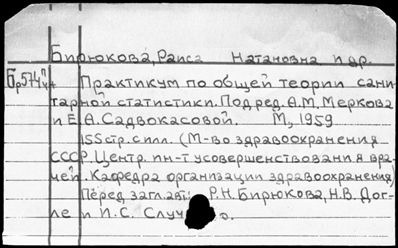 Бирюкова, Раиса Натановна и др.
Бр574 Практикум по общей теории сани-
тарной статистики. Под ред. А.М. Меркова
и Е.А. Садвокасовой. М, 1959
155 стр. с илл. (М-во здравоохранения
СССР. Центр. ин-т усовершенствования вра-
чей. Кафедра организации здравоохранения)
Перед заглав.: Р.Н. Бирюкова, Н.В. Дог-
ле и И.С. Случ